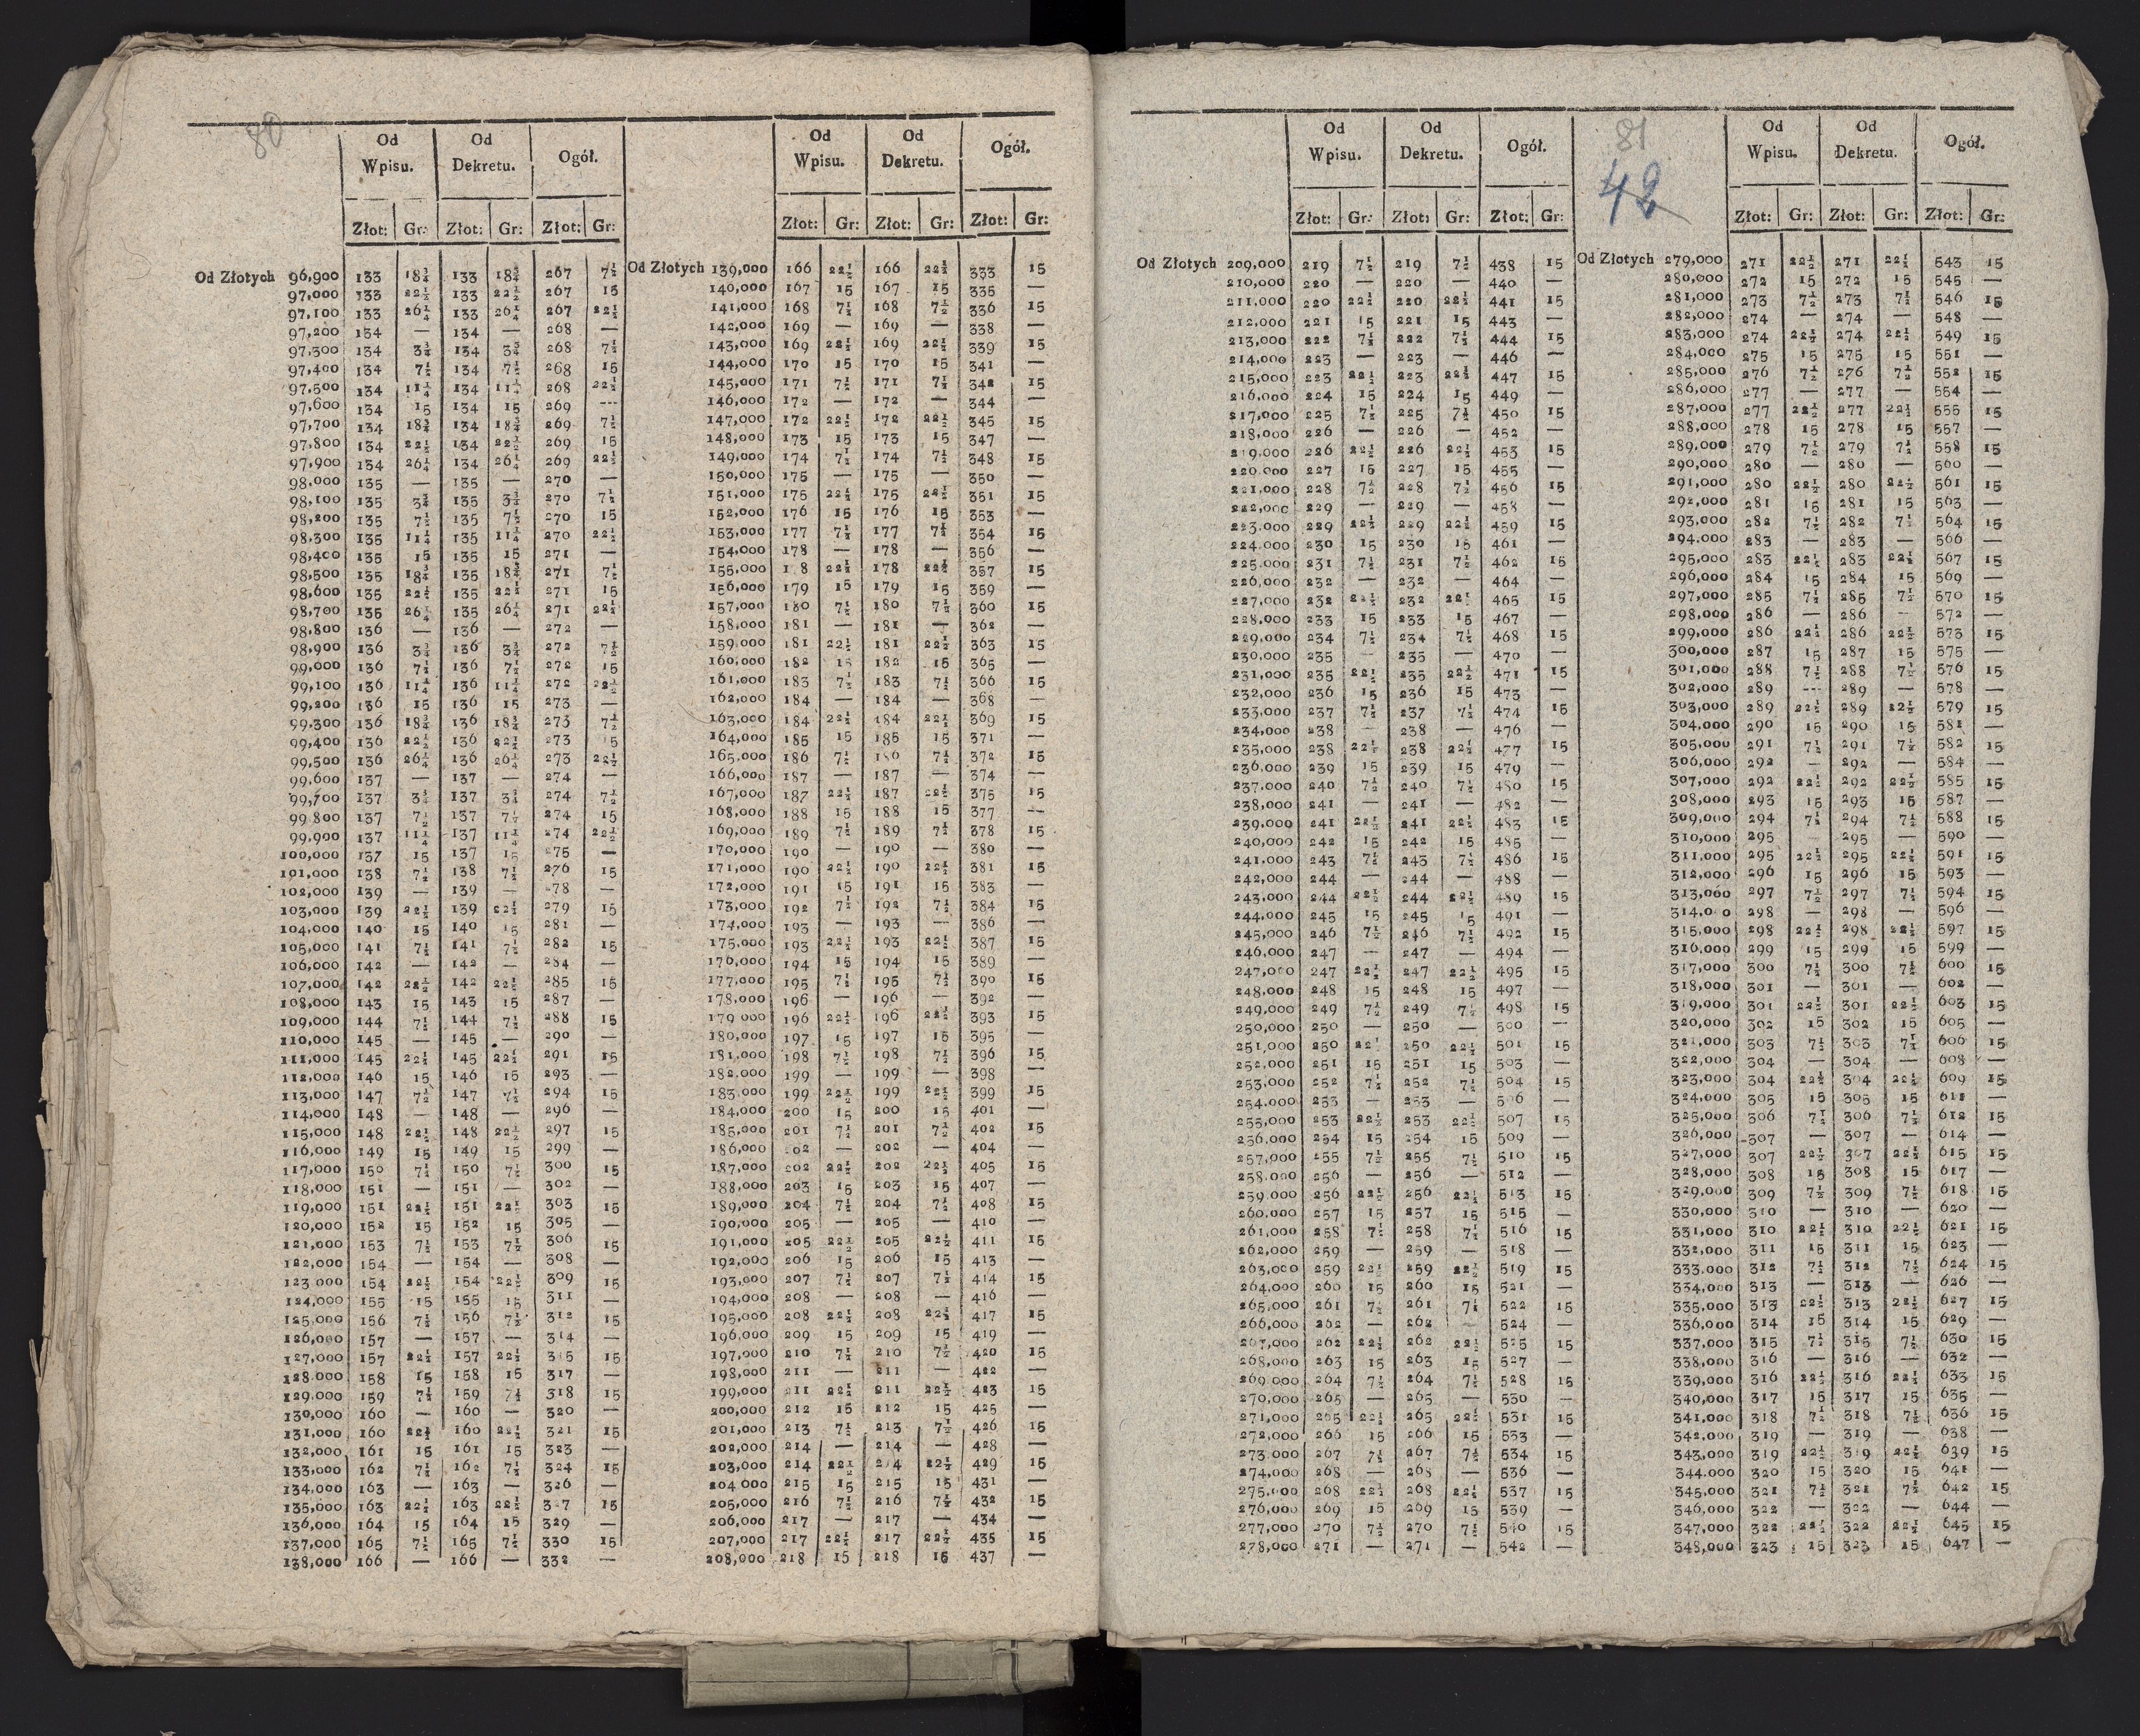 80
Od Wpisu. Od Dekretu. Ogół.
Złot: Gr: Złot: Gr: Złot: Gr:
Od Złotych 96,900 133 18¾ 133 18¾ 267 7½
97,000 133 22½ 133 22½ 267 15
97,100 133 26¼ 133 26¼ 267 22½
97,200 134 — 134 — 268 —
97,300 134 3¾ 134 3¾ 268 7½
97,400 134 7½ 134 7½ 268 15
97,500 134 11¼ 134 11¼ 268 22½
97,600 134 15 134 15 269 —
97,700 134 18¾ 134 18¾ 269 7½
97,800 134 22½ 134 22½ 269 15
97,900 134 26¼ 134 26¼ 269 22½
98,000 135 — 135 — 270 —
98,100 135 3¾ 135 3¾ 270 7½
98,200 135 7½ 135 7½ 270 15
98,300 135 11¼ 135 11¼ 270 22½
98,400 135 15 135 15 271 —
98,500 135 18¾ 135 18¾ 271 7½
98,600 135 22½ 135 22½ 271 15
98,700 135 26¼ 135 26¼ 271 22½
98,800 136 — 136 — 272 —
98,900 136 3¾ 136 3¾ 272 7½
99,000 136 7½ 136 7½ 272 15
99,100 136 11¼ 136 11¼ 272 22½
99,200 136 15 136 15 273 —
99,300 136 18¾ 136 18¾ 273 7½
99,400 136 22½ 136 22½ 273 15
99,500 136 26¼ 136 26¼ 273 22½
99,600 137 — 137 — 274 —
99,700 137 3¾ 137 3¾ 274 7½
99 800 137 7½ 137 7½ 274 15
99,900 137 11¼ 137 11¼ 274 22½
100,000 137 15 137 15 275 —
101,000 138 7½ 138 7½ 276 15
102,000 139 — 139 — 278 —
103,000 139 22½ 139 22½ 279 15
104,000 140 15 140 15 281 —
105,000 141 7½ 141 7½ 282 15
106,000 142 — 142 — 284 —
107,000 142 22½ 142 22½ 285 15
108,000 143 15 143 15 287 —
109,000 144 7½ 144 7½ 288 15
110,000 145 — 145 — 290 —
111,000 145 22½ 145 22½ 291 15
112,000 146 15 146 15 293 —
113,000 147 7½ 147 7½ 294 15
114,000 148 — 148 — 296 —
115,000 148 22½ 148 22½ 297 15
116,000 149 15 149 15 299 —
117,000 150 7½ 150 7½ 300 15
118,000 151 — 151 — 302 —
119,000 151 22½ 151 22½ 303 15
120,000 152 15 152 15 305 —
121,000 153 7½ 153 7½ 306 15
122,000 154 — 154 — 308 —
123 000 154 22½ 154 22½ 309 15
124,000 155 15 155 15 311 —
125,000 156 7½ 156 7½ 312 15
126,000 157 — 157 — 314 —
127,000 157 22½ 157 22½ 315 15
128.000 158 15 158 15 317 —
129.000 159 7½ 159 7½ 318 15
130,000 160 — 160 — 320 —
131,000 160 22½ 160 22½ 321 15
132,000 161 15 161 15 323 —
133,000 162 7½ 162 7½ 324 15
134,000 163 — 163 — 326 —
135,000 163 22½ 163 22½ 327 15
136,000 164 15 164 15 329 —
137,000 165 7½ 165 7½ 330 15
138,000 166 — 166 — 332 —
Od Wpisu. Od Dekretu. Ogół.
Złot: Gr: Złot: Gr: Złot: Gr:
Od Złotych 139,000 166 22½ 166 22½ 333 15
140,000 167 15 167 15 335 —
141,000 168 7½ 168 7½ 336 15
142,000 169 — 169 — 338 —
143,000 169 22½ 169 22½ 339 15
144,000 170 15 170 15 341 —
145,000 171 7½ 171 7½ 342 15
146,000 172 — 172 — 344 —
147,000 172 22½ 172 22½ 345 15
148,000 173 15 173 15 347 —
149,000 174 7½ 174 7½ 348 15
150,000 175 — 175 — 350 —
151,000 175 22½ 175 22½ 351 15
152,000 176 15 176 15 353 —
153,000 177 7½ 177 7½ 354 15
154,000 178 — 178 — 356 —
155,000 1 8 22½ 178 22½ 357 15
156,000 179 15 179 15 359 —
157,000 180 7½ 180 7½ 360 15
158,000 181 — 181 — 362 —
159,000 181 22½ 181 22½ 363 15
160,000 182 15 182 15 365 —
161,000 183 7½ 183 7½ 366 15
162,000 184 — 184 — 368 —
163,000 184 22½ 184 22½ 369 15
164,000 185 15 185 15 371 —
165,000 186 7½ 186 7½ 372 15
166,000 187 — 187 — 374 —
167,000 187 22½ 187 22½ 375 15
168,000 188 15 188 15 377 —
169,000 189 7½ 189 7½ 378 15
170,000 190 — 190 — 380 —
171,000 190 22½ 190 22½ 381 15
172,000 191 15 191 15 383 —
173,000 192 7½ 192 7½ 384 15
174,000 193 — 193 — 386 —
175,000 193 22½ 193 22½ 387 15
176,000 194 15 194 15 389 —
177,000 195 7½ 195 7½ 390 15
178,000 196 — 196 — 392 —
179 000 196 22½ 196 22½ 393 15
180,000 197 15 197 15 395 —
181,000 198 7½ 198 7½ 396 15
182,000 199 — 199 — 398 —
183,000 199 22½ 199 22½ 399 15
184,000 200 15 200 15 401 —
185,000 201 7½ 201 7½ 402 15
186,000 202 — 202 — 404 —
187,000 202 22½ 202 22½ 405 15
188,000 203 15 203 15 407 —
189,000 204 7½ 204 7½ 408 15
190,000 205 — 205 — 410 —
191,000 205 22½ 205 22½ 411 15
192,000 206 15 206 15 413 —
193,000 207 7½ 207 7½ 414 15
194,000 208 — 208 — 416 —
195,000 208 22½ 208 22½ 417 15
196,000 209 15 209 15 419 —
197,000 210 7½ 210 7½ 420 15
198,000 211 — 211 — 422 —
199,000 211 22½ 211 22½ 423 15
200,000 212 15 212 15 425 —
201,000 213 7½ 213 7½ 426 15
202,000 214 — 214 — 428 —
203,000 214 22½ 214 22½ 429 15
204 000 215 15 215 15 431 —
205,000 216 7½ 216 7½ 432 15
206,000 217 — 217 — 434 —
207,000 217 22½ 217 22½ 435 15
208,000 218 15 218 15 437 —
Od Wpisu. Od Dekretu. Ogół.
Złot: Gr: Złot: Gr: Złot: Gr:
Od Złotych 209,000 219 7½ 219 7½ 438 15
210,000 220 — 220 — 440 —
211,000 220 22½ 220 22½ 441 15
212,000 221 15 221 15 443 —
213,000 222 7½ 222 7½ 444 15
214,000 223 — 223 — 446 —
215,000 223 22½ 223 22½ 447 15
216,000 224 15 224 15 449 —
217,000 225 7½ 225 7½ 450 15
218,000 226 — 226 — 452 —
219,000 226 22½ 226 22½ 453 15
220,000 227 15 227 15 455 —
221,000 228 7½ 228 7½ 456 15
222,000 229 — 229 — 458 —
223.000 229 22½ 229 22½ 459 15
224.000 230 15 230 15 461 —
225.000 231 7½ 231 7½ 462 15
226,000 232 — 232 — 464 —
227,000 232 22½ 232 22½ 465 15
228,000 233 15 233 15 467 —
229,000 234 7½ 234 7½ 468 15
230,000 235 — 235 — 470 —
231,000 235 22½ 235 22½ 471 15
232,000 236 15 236 15 473 —
233,000 237 7½ 237 7½ 474 15
234,000 238 — 238 — 476 —
235,000 238 22½ 238 22½ 477 15
236,000 239 15 239 15 479 —
237,000 240 7½ 240 7½ 480 15
238,000 241 — 241 — 482 —
239,000 241 22½ 241 22½ 483 15
240,000 242 15 242 15 485 —
241,000 243 7½ 243 7½ 486 15
242,000 244 — 244 — 488 —
243,000 244 22½ 244 22½ 489 15
244,000 245 15 245 15 491 —
245,000 246 7½ 246 7½ 492 15
246,000 247 — 247 — 494 —
247,000 247 22½ 247 22½ 495 15
248,000 248 15 248 15 497 —
249,000 249 7½ 249 7½ 498 15
250,000 250 — 250 — 500 —
251,000 250 22½ 250 22½ 501 15
252,000 251 15 251 15 503 —
253,000 252 7½ 252 7½ 504 15
254,000 253 — 253 — 506 —
255,000 253 22½ 253 22½ 507 15
256,000 254 15 254 15 509 —
257,000 255 7½ 255 7½ 510 15
258,000 256 — 256 — 512 —
259,000 256 22½ 256 22½ 513 15
260,000 257 15 257 15 515 —
261,000 258 7½ 258 7½ 516 15
262,000 259 — 259 — 518 —
263,000 259 22½ 259 22½ 519 15
264,000 260 15 260 15 521 —
265,000 261 7½ 261 7½ 522 15
266,000 262 — 262 — 524 —
267,000 262 22½ 262 22½ 525 15
268,000 263 15 263 15 527 —
269 000 264 7½ 264 7½ 528 15
270,000 265 — 265 — 530 —
271,000 265 22½ 265 22½ 531 15
272,000 266 15 266 15 533 —
273.000 267 7½ 267 7½ 534 15
274,000 268 — 268 — 536 —
275,000 268 22½ 268 22½ 537 15
276,000 269 15 269 15 539 —
277,000 270 7½ 270 7½ 540 15
278,000 271 — 271 — 542 —
81
42
Od Wpisu. Od Dekretu. Ogół.
Złot: Gr: Złot: Gr: Złot: Gr:
Od Złotych 279,000 271 22½ 271 22½ 543 15
280,000 272 15 272 15 545 —
281,000 273 7½ 273 7½ 546 15
282,000 274 — 274 — 548 —
283,000 274 22½ 274 22½ 549 15
284,000 275 15 275 15 551 —
285,000 276 7½ 276 7½ 552 15
286,000 277 — 277 — 554 —
287,000 277 22½ 277 22½ 555 15
288,000 278 15 278 15 557 —
289,000 279 7½ 279 7½ 558 15
290,000 280 — 280 — 560 —
291,000 280 22½ 280 22½ 561 15
292,000 281 15 281 15 563 —
293,000 282 7½ 282 7½ 564 15
294,000 283 — 283 — 566 —
295,000 283 22½ 283 22½ 567 15
296,000 284 15 284 15 569 —
297,000 285 7½ 285 7½ 570 15
298,000 286 — 286 — 572 —
299,000 286 22½ 286 22½ 573 15
300,000 287 15 287 15 575 —
301,000 288 7½ 288 7½ 576 15
302,000 289 — 289 — 578 —
303,000 289 22½ 289 22½ 579 15
304,000 290 15 290 15 581 —
305,000 291 7½ 291 7½ 582 15
306,000 292 — 292 — 584 —
307,000 292 22½ 292 22½ 585 15
308,000 293 15 293 15 587 —
309,000 294 7½ 294 7½ 588 15
310,000 295 — 295 — 590 —
311,000 295 22½ 295 22½ 591 15
312,000 296 15 296 15 593 —
313,000 297 7½ 297 7½ 594 15
314,000 298 — 298 — 596 —
315,000 298 22½ 298 22½ 597 15
316,000 299 15 299 15 599 —
317,000 300 7½ 300 7½ 600 15
318,000 301 — 301 — 602 —
319,000 301 22½ 301 22½ 603 15
320,000 302 15 302 15 605 —
321,000 303 7½ 303 7½ 606 15
322,000 304 — 304 — 608 —
323,000 304 22½ 304 22½ 609 15
324,000 305 15 305 15 611 —
325,000 306 7½ 306 7½ 612 15
326,000 307 — 307 — 614 —
327,000 307 22½ 307 22½ 615 15
328,000 308 15 308 15 617 —
329,000 309 7½ 309 7½ 618 15
330,000 310 — 310 — 620 —
331,000 310 22½ 310 22½ 621 15
332,000 311 15 311 15 623 —
333.000 312 7½ 312 7½ 624 15
334,000 313 — 313 — 626 —
335,000 313 22½ 313 22½ 627 15
336,000 314 15 314 15 629 —
337,000 315 7½ 315 7½ 630 15
338,000 316 — 316 — 632 —
339,000 316 22½ 316 22½ 633 15
340,000 317 15 317 15 635 —
341,000 318 7½ 318 7½ 636 15
342,000 319 — 319 — 638 —
343,000 319 22½ 319 22½ 639 15
344,000 320 15 320 15 641 —
345,000 321 7½ 321 7½ 642 15
346,000 322 — 322 — 644 —
347,000 322 22½ 322 22½ 645 15
348,000 323 15 323 15 647 —